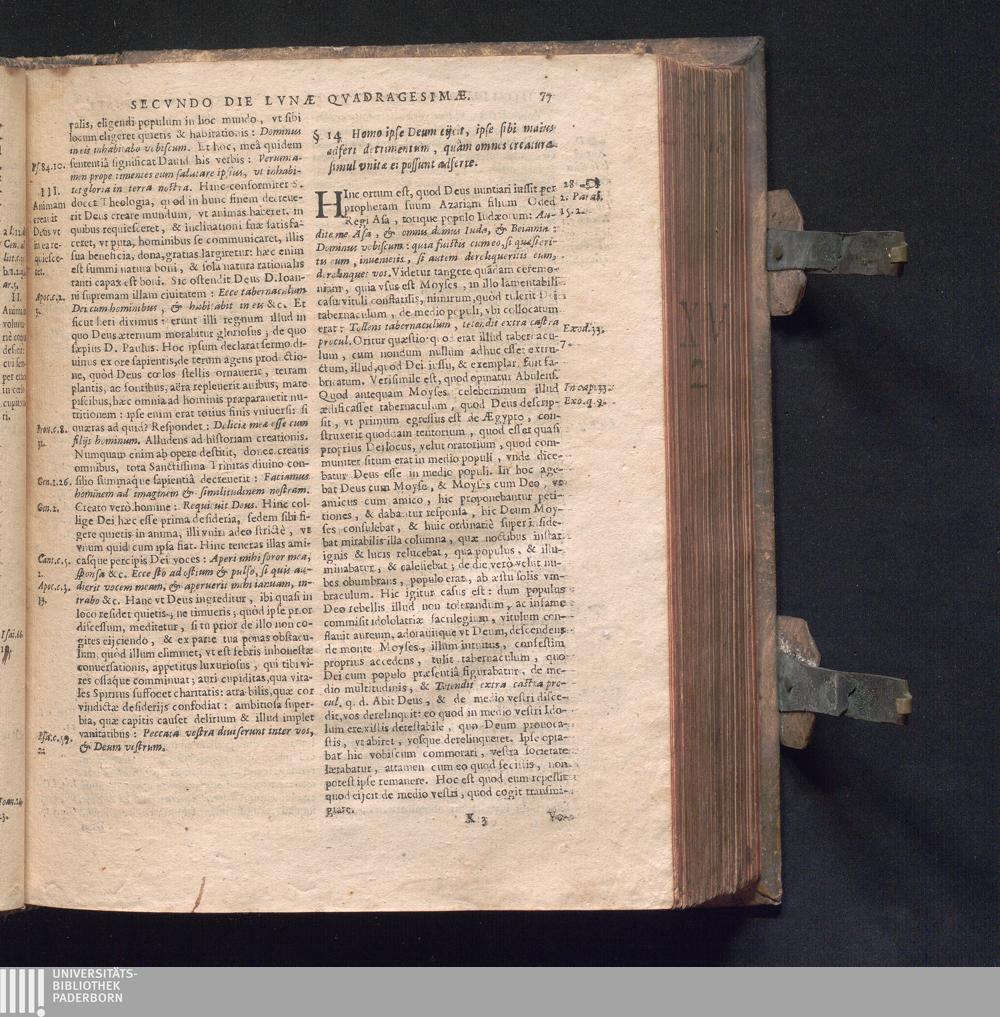 SECVNDO DIE LVNÆ QVADRAGESIMÆ. 77
ralis, eligendi populum in hoc mundo, vt sibi
locum eligeret quietis & habitationis: Dominus
in eis inhabitabo vobiscum. Et hoc, meâ quidem
Ps. 84. 10. sententiâ significat Dauid his verbis: Verumta-
men prope timentes eum salutare ipsius, vt inhabi-
III. tet gloria in terra nostra. Hinc conformiter S.
Animam docet Theologia, quod in hunc finem decreue-
creauit rit Deus creare mundum, vt animas haberet, in
Deus vt quibus requiesceret, & inclinationi suæ satisfa-
in ea re- ceret, vt puta, hominibus se communicaret, illis
quiesce- sua beneficia, dona, gratias largiretur: hæc enim
ret. est summi natura boni, & sola natura rationalis
tanti capax est boni. Sic ostendit Deus D. Ioan-
Apoc. c. 2. ni supremam illam ciuitatem: Ecce tabernaculum
3. Dei cum hominibus, & habitabit in eis &c. Et
sicut heri diximus: erunt illi regnum illud in
quo Deus æternum morabitur gloriosus, de quo
sæpius D. Paulus. Hoc ipsum declarat sermo di-
uinus ex ore sapientis, de rerum agens productio-
ne, quòd Deus cœlos stellis ornauerit, terram
plantis, ac fontibus, aëra repleuerit auibus, mare
piscibus, hæc omnia ad hominis præparauerit nu-
tritionem: ipse enim erat totius finis vniuersi: si
Prou. c. 8. quæras ad quid? Respondet: Deliciæ meæ esse cum
31. filijs hominum. Alludens ad historiam creationis.
Numquam enim ab opere destitit, donec creatis
omnibus, tota Sanctissima Trinitas diuino con-
Gen. 1. 26. silio summaque sapientiâ decreuerit: Faciamus
hominem ad imaginem & similitudinem nostram.
Gen. 2. Creato verò homine: Requieuit Deus. Hinc col-
lige Dei hæc esse prima desideria, sedem sibi fi-
gere quietis in anima, illi vniri adeo strictè, vt
vnum quid cum ipsa fiat. Hinc teneras illas ami-
Cant. c. 5. casque percipis Dei voces: Aperi mihi soror mea,
2. sponsa &c. Ecce sto ad ostium & pulso, si quis au-
Apoc. c. 3. dierit vocem meam, & aperuerit mihi ianuam, in-
trabo &c. Hanc vt Deus ingreditur, ibi quasi in
loco residet quietis; ne timueris; quòd ipse prior
discessum, meditetur, si tu prior de illo non co-
gites eijciendo, & ex parte tua ponas obstacu-
lum, quod illum eliminet, vt est febris inhonestæ
conuersationis, appetitus luxuriosus, qui tibi vi-
res ossaque comminuat; auri cupiditas, qua vita-
les Spiritus suffocet charitatis: atra bilis, quæ cor
vindictæ desiderijs confodiat: ambitiosa super-
bia, quæ capitis causet delirium & illud implet
vanitatibus: Peccata vestra diuiserunt inter vos,
& Deum vestrum.
§. 14 Homo ipse Deum eijcit, ipse sibi maius
adfert detrimentum, quàm omnes creaturæ
simul vnitæ ei possunt adferre.
HInc ortum est, quod Deus nuntiari iussit per
prophetam suum Azariam filium Oded
2. Paral.
Regi Asa, totique populo Iudæorum: Au-
15. 2.
dite me Asa, & omnis domus Iuda, & Beniamin:
Dominus vobiscum: quia fuistis cum eo, si quæsieri-
tis eum, inuenietis, si autem dereliqueritis eum,
derelinquet vos. Videtur tangere quadam ceremo-
niam, quia vsus est Moyses, in illo lamentabili
casu vituli conflatilis, nimirum, quòd tulerit Dei
tabernaculum, de medio populi, vbi collocatum
erat: Tollens tabernaculum, tetendit extra castra
Exod. 33.
procul. Oritur quæstio: quod erat illud tabernacu-
7.
lum, cum nondum nullum adhuc esset extru-
ctum, illud, quod Dei iussu, & exemplar, fuit fa-
bricatum. Verisimile est, quod opinatur Abulens.
In cap. 33.
Quod antequam Moyses celeberrimum illud
Exo. q. 8.
ædificasset tabernaculum, quod Deus descrip-
sit, vt primum egressus est de Ægypto, con-
struxerit quoddam tentorium, quod esset quasi
proprius Dei locus, velut oratorium, quod com-
muniter situm erat in medio populi, vnde dice-
batur Deus esse in medio populi. In hoc age-
bat Deus cum Moyse, & Moyses cum Deo, vt
amicus cum amico, hic proponebantur peti-
tiones, & dabantur responsa, hic Deum Moy-
ses consulebat, & huic ordinariè super inside-
bat mirabilis illa columna, quæ noctibus instar
ignis & lucis relucebat, qua populus, & illu-
minabatur, & calefiebat; de die verò velut nu-
bes obumbrans, populo erat, ab æstu solis vm-
braculum. Hic igitur casus est: dum populus
Deo rebellis illud non tolerandum, ac infame
commisit idololatriæ sacrilegium, vitulum con-
flauit aureum, adorauitque vt Deum, descendens
de monte Moyses, illum intuitus, confestim
proprius accedens, tulit tabernaculum, quo
Dei cum populo præsentiâ figurabatur, de me-
dio multitudinis, & Tetendit extra castra pro-
cul, q. d. Abit Deus, & de medio vestri disce-
dit, vos derelinquit: eo quod in medio vestri Ido-
lum erexistis detestabile, quo Deum prouoca-
stis, vt abiret, vosque derelinqueret. Ipse opta-
bat hic vobiscum commorari, vestra societate
lætabatur, attamen cum eo quod fecistis, non
potest ipse remanere. Hoc est quod eum repellit
quod eijcit de medio vestri, quod cogit transmi-
grare.
K 3
UNIVERSITÄTS-
BIBLIOTHEK
PADERBORN